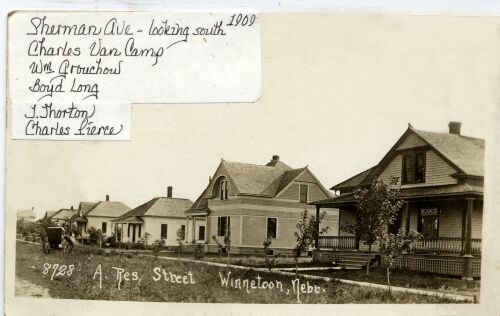 Sherman Ave - looking south 1909
Charles Van Camp
Wm Grouchow
Boyd Long
J. Thorton
Charles Pierce
8728 A. Res. Street Winnetoon, Nebr.